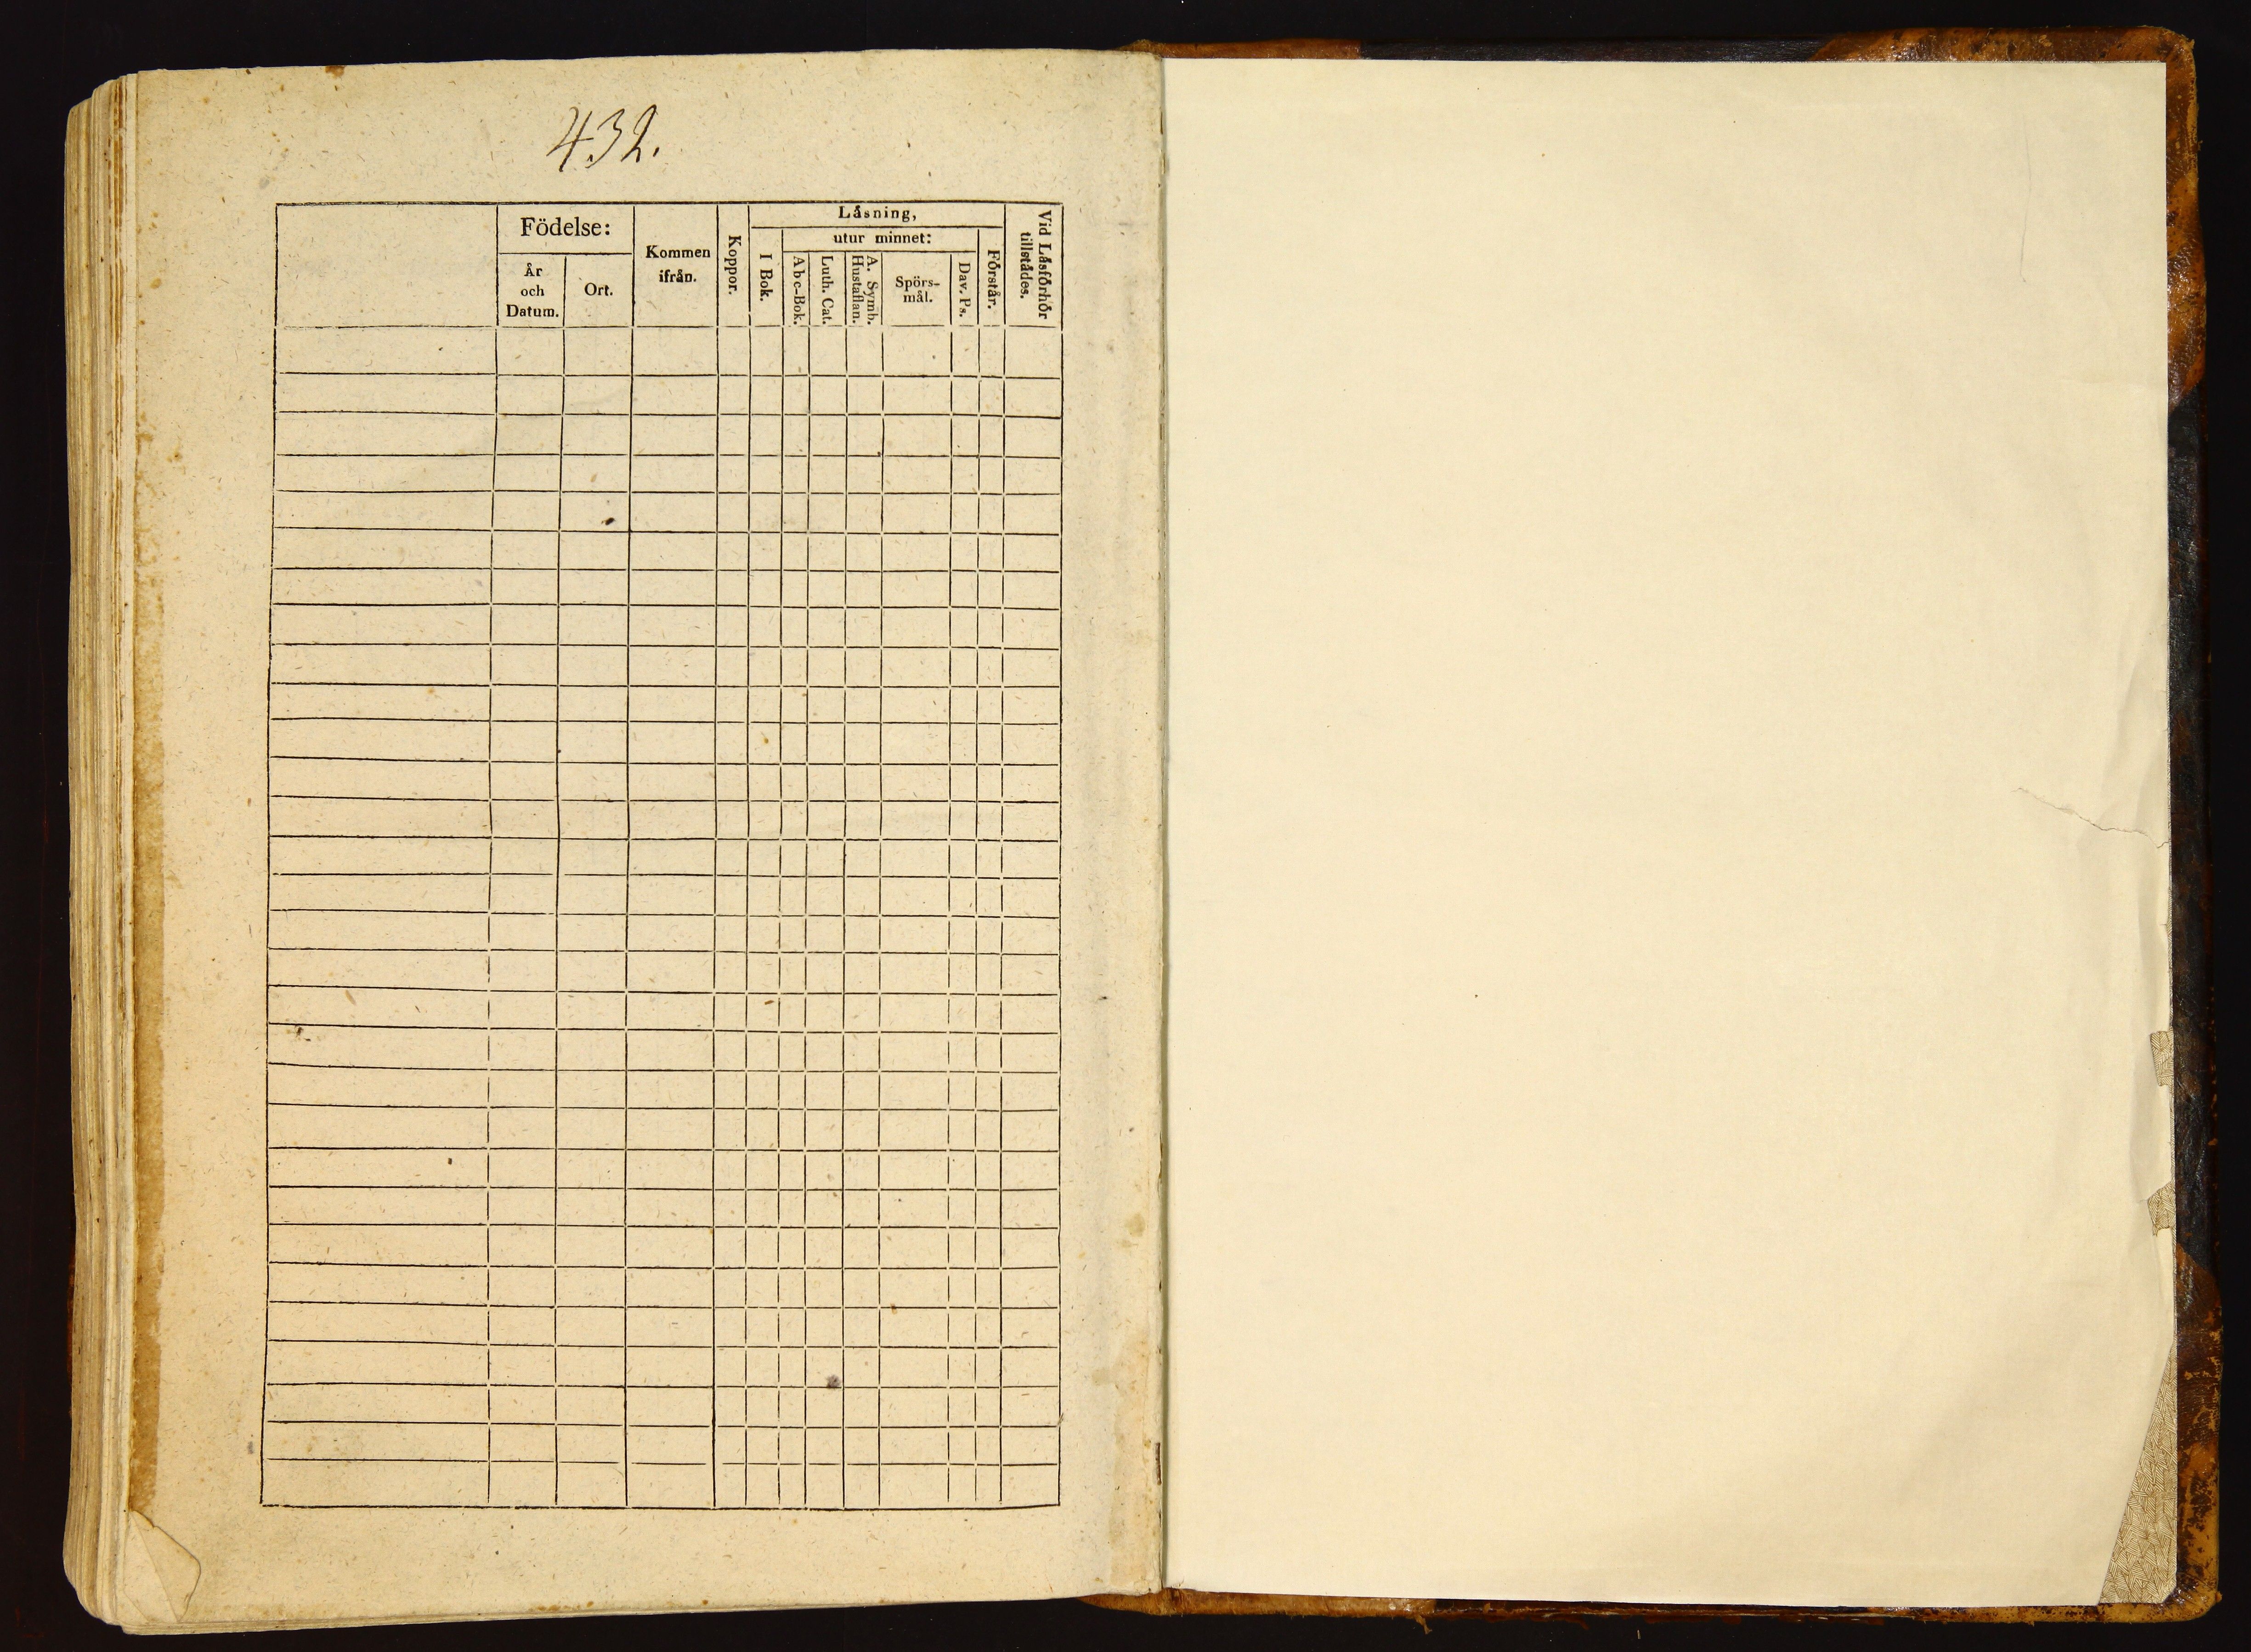 432.
Födelse:
År
och
Datum.
Ort.
Kommen
ifrån.
Koppor.
Låsning,
I Bok.
utur minnet:
Abc-Bok.
Luth. Cat.
A. Symb.
Hustaflan.
Spörs-
mål.
Dav. Ps.
Förstår.
Vid Låsförhör
tillstådes.